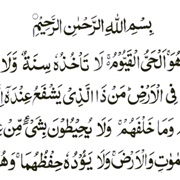 بِسْمِ اللّٰهِ الرَّحْمٰنِ الرَّحِيْمِ
هُوَ ۚ اَلْحَيُّ الْقَيُّوْمُ ۚ لَا تَاْخُذُهٗ سِنَةٌ وَّلَا
فِي الْاَرْضِ ؕ مَنْ ذَا الَّذِيْ يَشْفَعُ عِنْدَهٗۤ اِ
وَمَا خَلْفَهُمْ ۚ وَلَا يُحِيْطُوْنَ بِشَيْءٍ مِّنْ عِ
مٰوٰتِ وَالْاَرْضَ ۚ وَلَا يَـُٔوْدُهٗ حِفْظُهُمَا ۚ وَهُوَ